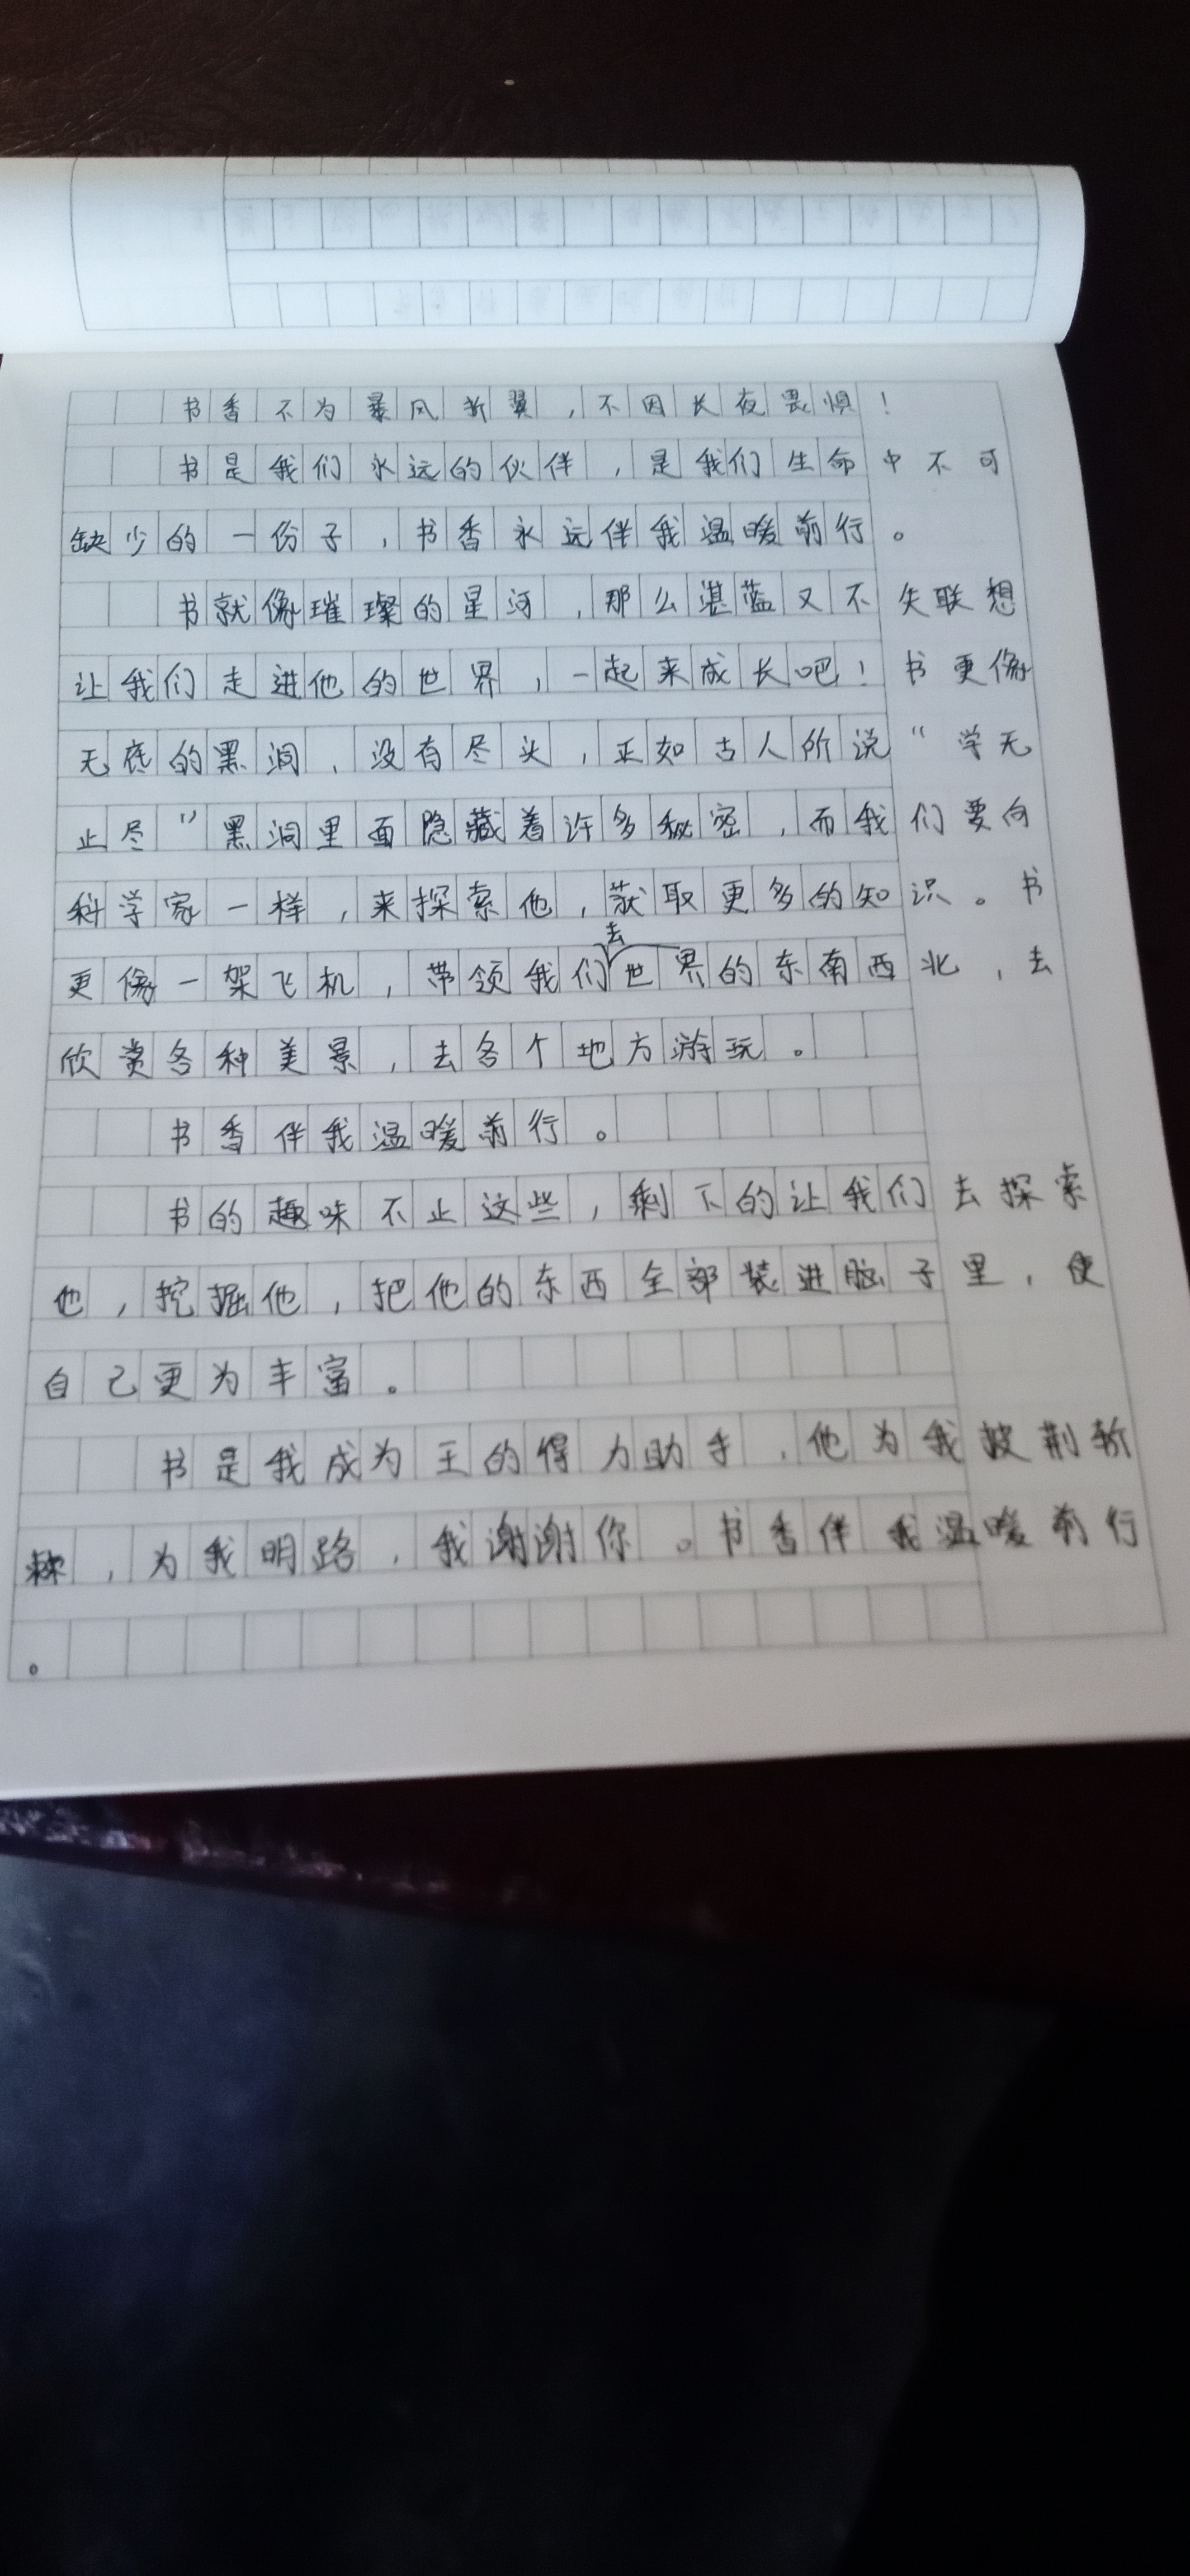 书香不为暴风折翼，不因长夜畏惧！
书是我们永远的伙伴，是我们生命中不可
缺少的一份子，书香永远伴我温暖前行。
书就像璀璨的星河，那么湛蓝又不失联想
让我们走进他的世界，一起来成长吧！书更像
无底的黑洞，没有尽头，正如古人所说“学无
止尽”黑洞里面隐藏着许多秘密，而我们要向
科学家一样，来探索他，获取更多的知识。书
更像一架飞机，带领我们去世界的东南西北，去
欣赏各种美景，去各个地方游玩。
书香伴我温暖前行。
书的趣味不止这些，剩下的让我们去探索
他，挖掘他，把他的东西全部装进脑子里，使
自己更为丰富。
书是我成为王的得力助手，他为我披荆斩
棘，为我明路，我谢谢你。书香伴我温暖前行
。